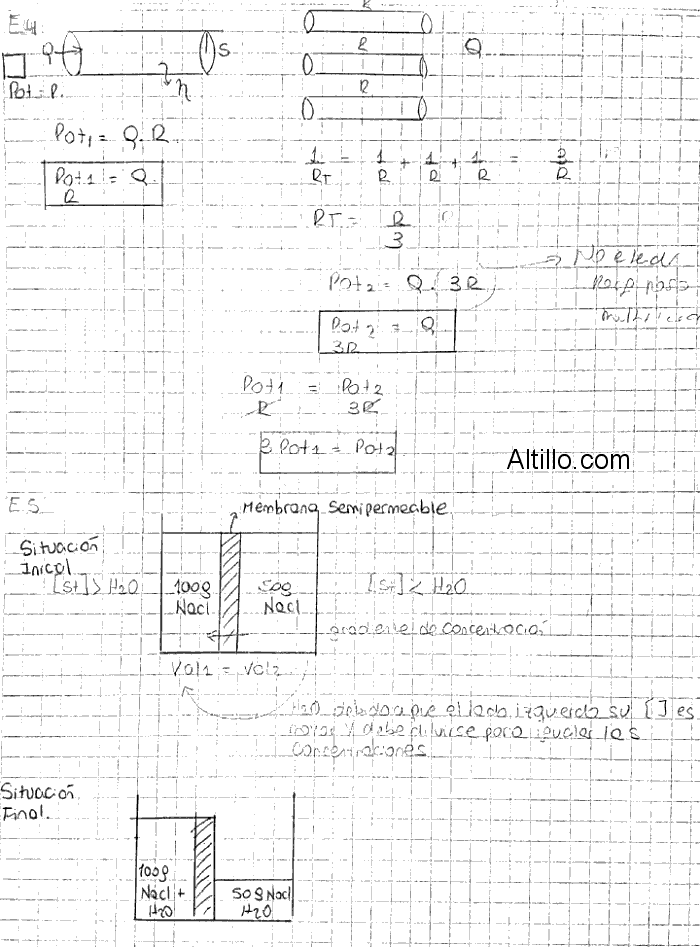 E4
Q
S
Pot = P.
η
R
R
R
Q
Pot1 = Q . R
Pot1 = Q
R
1 = 1 + 1 + 1 = 3
RT R R R R
RT = R
3
Pot2 = Q . 3R
Pot2 = Q
3R
Pot1 = Pot2
R 3R
3 Pot1 = Pot2
Altillo.com
E5
Membrana Semipermeable
Situación
Inicial
[St] > H2O
100g
Nacl
50g
Nacl
[St] < H2O
gradiente de concentración
Vol1 = Vol2
H2O debido a que el lado izquierdo su [ ] es
mayor y debe diluirse para igualar las
concentraciones
Situación
Final.
100g
Nacl +
H2O
50g Nacl
H2O